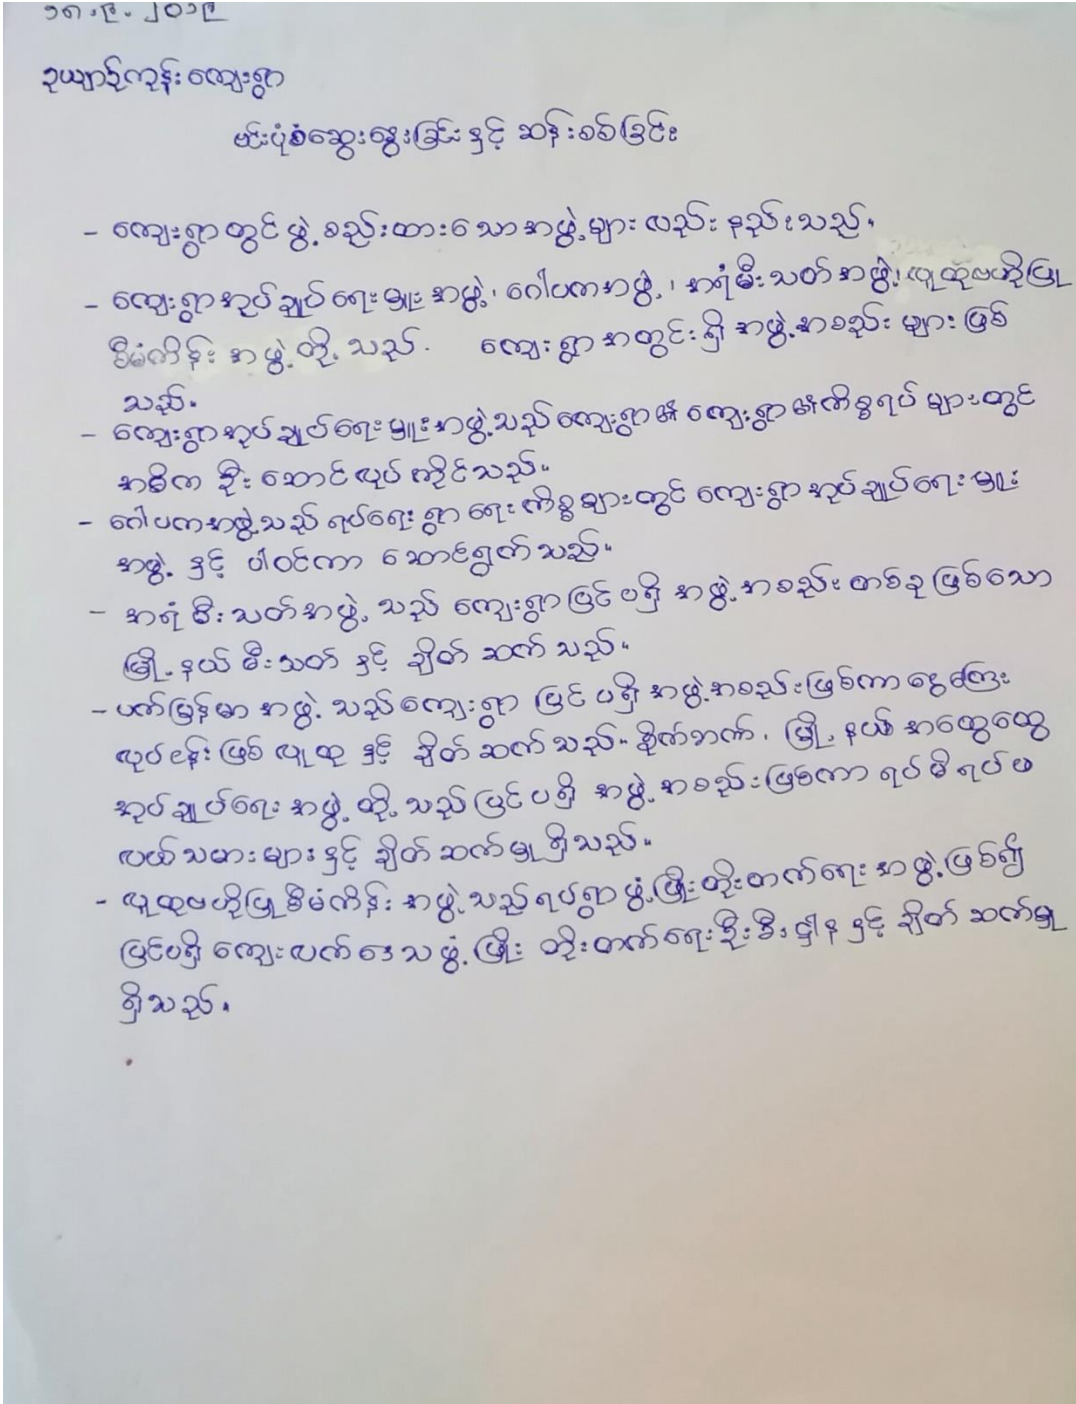 ၁၈.၉.၂၀၁၉
ဥယျာဉ်ကုန်းကျေးရွာ
ဗင်းပုံစံဆွေးနွေးခြင်းနှင့် ဆန်းစစ်ခြင်း
- ကျေးရွာတွင်ဖွဲ့စည်းထားသောအဖွဲ့များလည်း နည်းသည်။
- ကျေးရွာအုပ်ချုပ်ရေးမှူးအဖွဲ့၊ ဂေါပကအဖွဲ့၊ အရံမီးသတ်အဖွဲ့၊ လူထုဗဟိုပြု
စီမံကိန်းအဖွဲ့တို့သည်. ကျေးရွာအတွင်းရှိ အဖွဲ့အစည်းများဖြစ်
သည်။
- ကျေးရွာအုပ်ချုပ်ရေးမှူးအဖွဲ့သည်ကျေးရွာ၏ ကျေးရွာ၏ကိစ္စရပ်များတွင်
အဓိက ဦးဆောင်လုပ်ကိုင်သည်။
- ဂေါပကအဖွဲ့သည် ရပ်ရေးရွာရေးကိစ္စများတွင် ကျေးရွာအုပ်ချုပ်ရေးမှူး
အဖွဲ့ နှင့် ပါဝင်ကာ ဆောင်ရွက်သည်။
- အရံမီးသတ်အဖွဲ့သည် ကျေးရွာပြင်ပရှိ အဖွဲ့အစည်းတစ်ခုဖြစ်သော
မြို့နယ်မီးသတ် နှင့် ချိတ်ဆက်သည်။
- ပက်မြန်မာအဖွဲ့သည်ကျေးရွာ ပြင်ပရှိအဖွဲ့အစည်းဖြစ်ကာငွေကြေး
လုပ်ငန်းဖြစ် လူထု နှင့် ချိတ်ဆက်သည်။ စိုက်ဘက်၊ မြို့နယ်အထွေထွေ
အုပ်ချုပ်ရေးအဖွဲ့တို့သည်ပြင်ပရှိ အဖွဲ့အစည်းဖြစ်ကာ ရပ်မိရပ်ဖ
လယ်သမားများနှင့် ချိတ်ဆက်မှုရှိသည်။
- လူထုဗဟိုပြုစီမံကိန်းအဖွဲ့သည်ရပ်ရွာဖွံ့ဖြိုးတိုးတက်ရေးအဖွဲ့ဖြစ်၍
ပြင်ပရှိကျေးလက်ဒေသဖွံ့ဖြိုး တိုးတက်ရေးဦးစီးဌါန နှင့် ချိတ်ဆက်မှု
ရှိသည်။